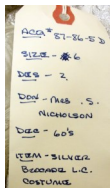 ACC# 87-86-5D
SIZE - #6
DES - 2.
DON - MRS. S.
NICHOLSON
DEC - 60'S
ITEM - SILVER
BROCADE L.C.
COSTUME